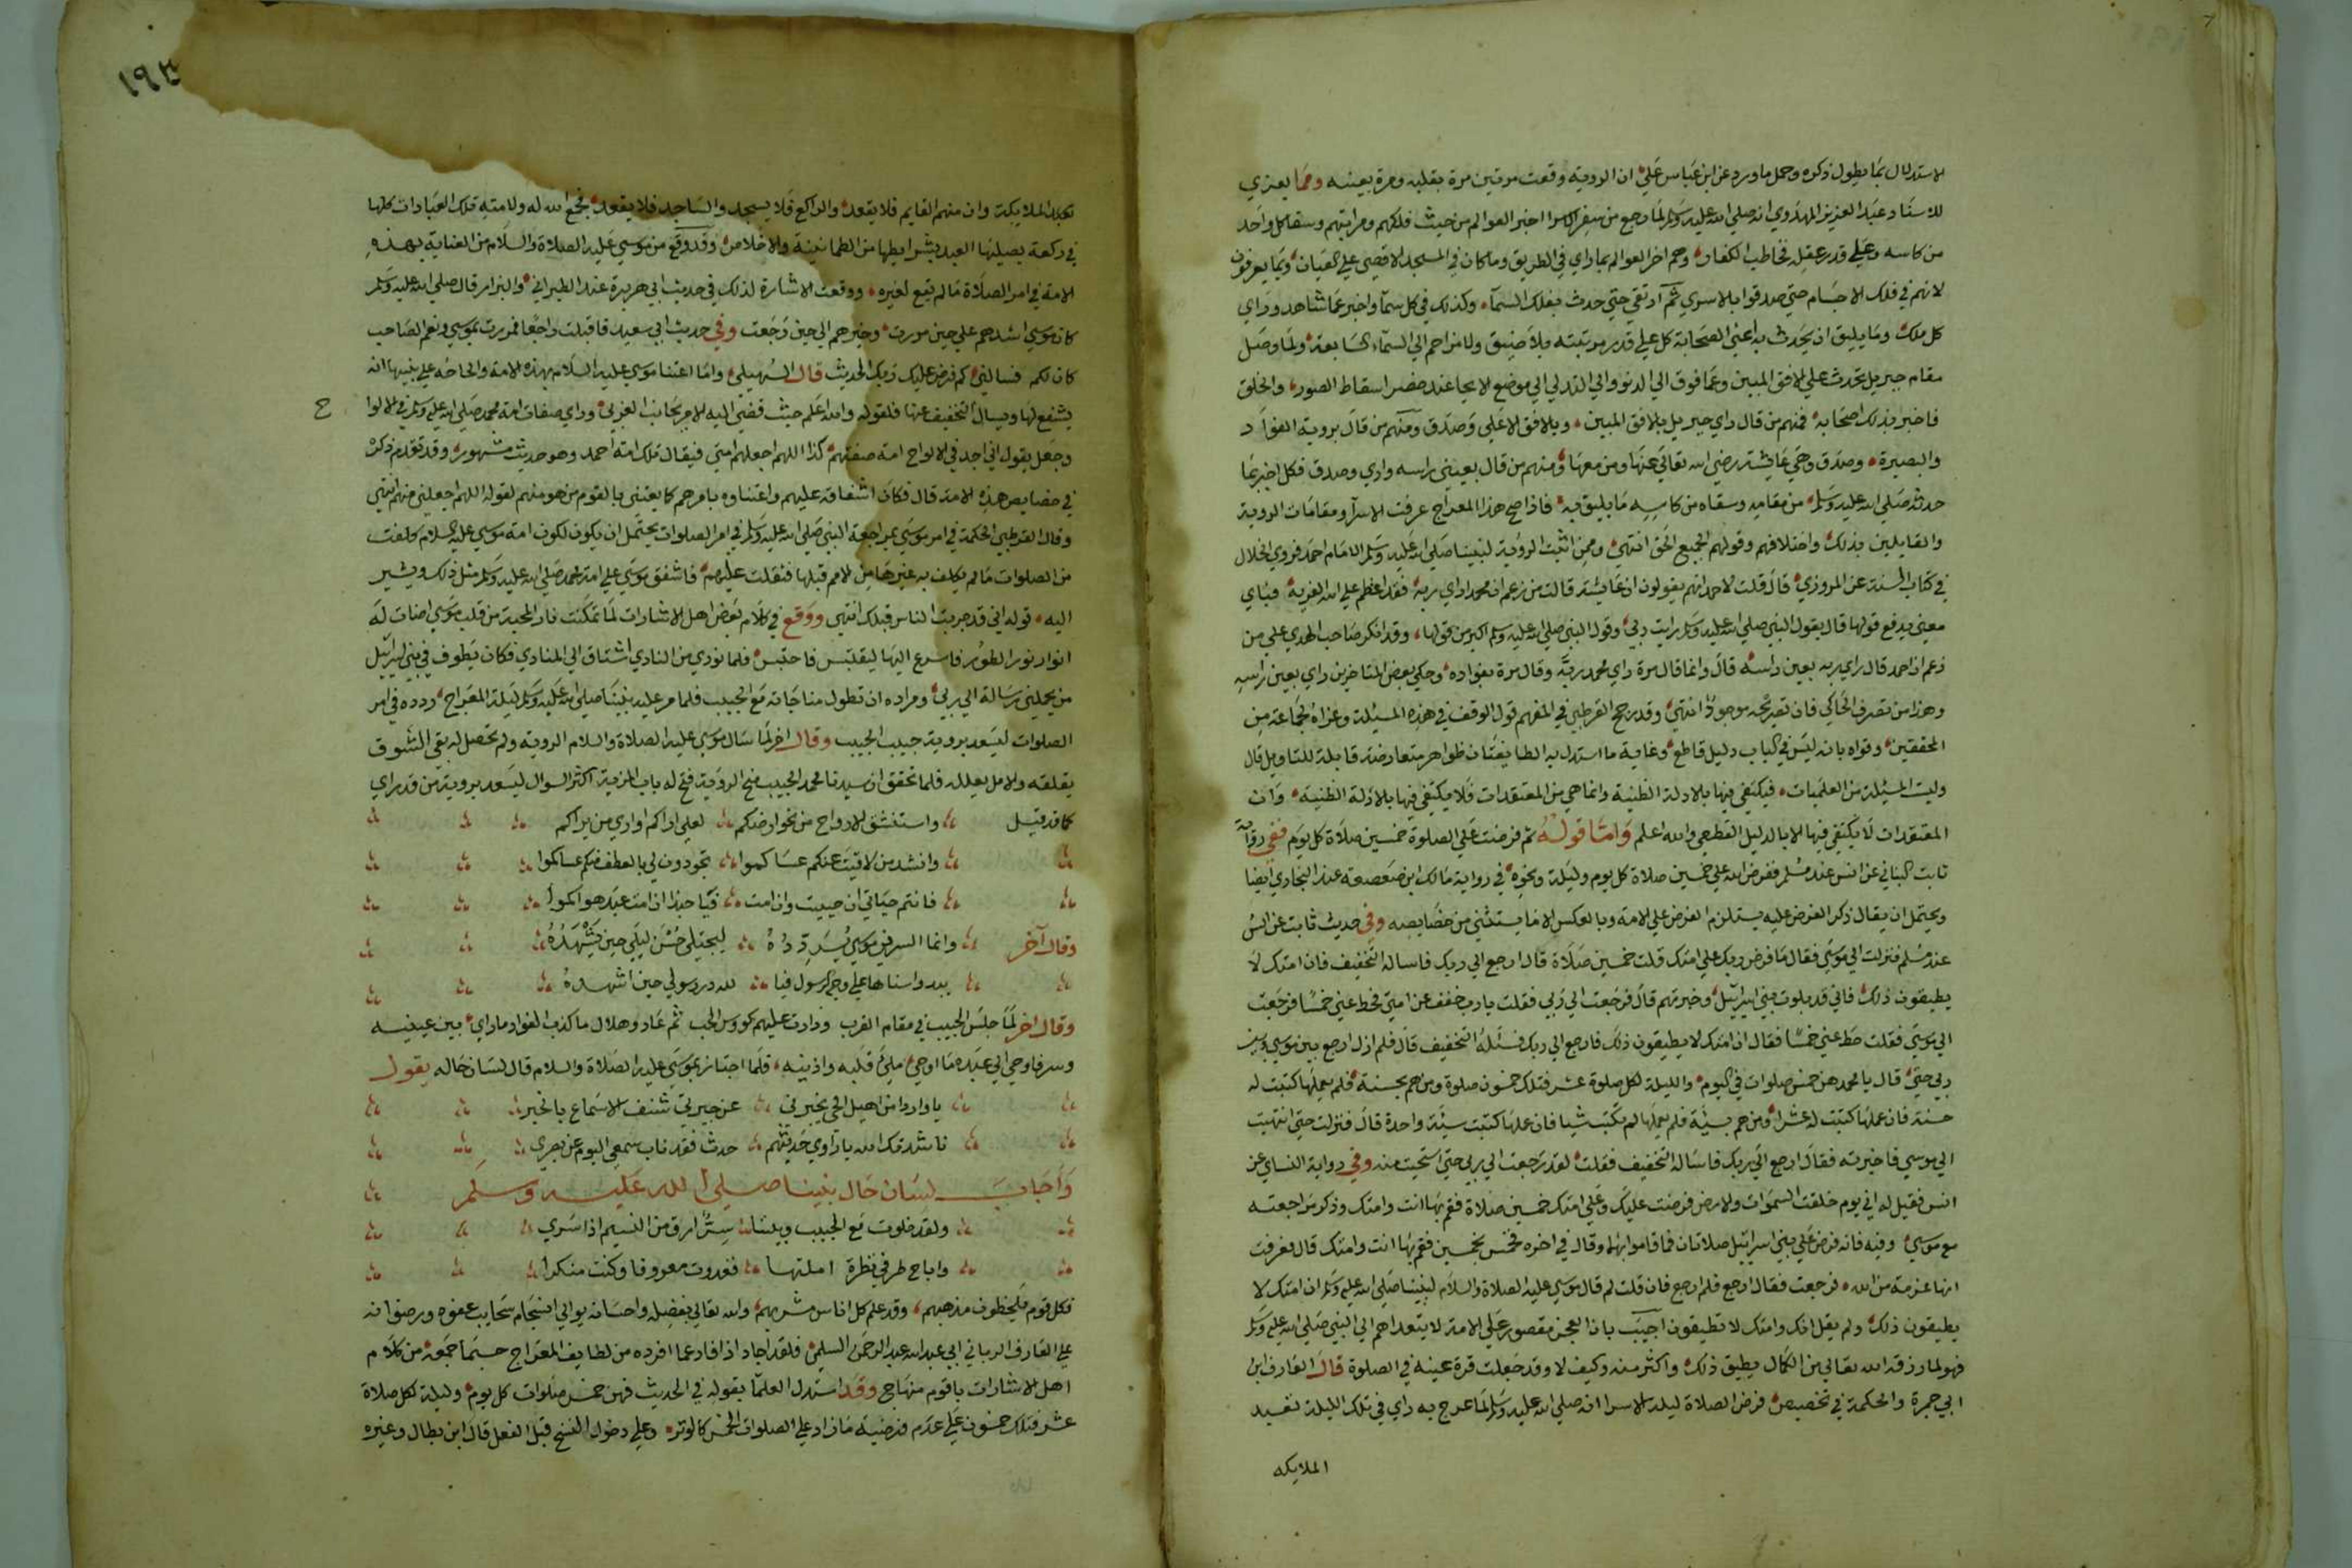 للاستدلال بما يطول ذكره وحمل ما ورد عن ابن عباس علي ان الروية وقعت مرتين مرة بقلبه ومرة بعينه ومما يعزي
للاستاد عبد العزيز المهدوي انه صلي الله عليه وسلم لما رجع من سفر الاسرا اخبر العوالم من حيث فلكهم ومراتبهم وسقا كل واحد
من كاسه وعلي قدر عقله فخاطب الكفار وهم اخر العوالم بما راي في الطريق وما كان في المسجد الاقصي علي العيان وبما يعرفون
لانهم في فلك الاجسام حتي صدقوا بالاسري ثم ارتقي حتي حدث بفلك السمآء وكذلك في كل سمآ واخبر عما شاهد وراي
كل ملك وما يليق ان يحدث به اعني الصحابة كل علي قدر مرتبته بلا ضيق ولا مزاحم الي السمآء السابعة ولما وصل
مقام جبريل تحدث علي الافق المبين وعما فوق الي الدنو والي التدلي الي موضع الايحا عند حضر اسقاط الصور والخلق
فاخبر بذلك اصحابه فمنهم من قال راي جبريل بالافق المبين وبالافق الاعلي وصدق ومنهم من قال بروية الفواد
والبصيرة وصدق وهي عايشة رضي الله تعالي عنها ومن معها ومنهم من قال بعيني راسه راي وصدق فكل اخبر بما
حدثه صلي الله عليه وسلم من مقامه وسقاه من كاسه ما يليق به فاذا صح هذا المعراج عرفت الاسرآ ومقامات الروية
والقايلين بذلك واختلافهم وقولهم الجميع الحق انتهي وممن اثبت الروية لنبينا صلي الله عليه وسلم الامام احمد فروي الخلال
في كتاب السنة عن المروزي قال قلت لاحمد انهم يقولون ان عايشة قالت من زعم ان محمدا راي ربه فقد اعظم علي الله الفرية فباي
معني يدفع قولها قال بقول النبي صلي الله عليه وسلم رايت ربي وقول النبي صلي الله عليه وسلم اكبر من قولها وقد انكر صاحب الهدي علي من
زعم ان احمد قال راي ربه بعين راسه قال وانما قال مرة راي محمد ربه وقال مرة بفواده وحكي بعض المتاخرين راي بعين راسه
وهذا من تصرف الحاكي فان نصوصه موجودة انتهي وقد رجح القرطبي في المفهم قول الوقف في هذه المسيلة وعزاه لجماعة من
المحققين وقواه بانه ليس في الباب دليل قاطع وغاية ما استدل به الطايفتان ظواهر متعارضة قابلة للتاويل قال
وليست المسيلة من العلميات فيكتفي فيها بالادلة الظنية وانما هي من المعتقدات فلا يكتفي فيها بالادلة الظنية وان
المعتقدات لا يكتفي فيها الا بالدليل القطعي والله اعلم واما قوله ثم فرضت علي الصلوة خمسين صلاة كل يوم ففي رواية
ثابت البناني عن انس عند مسلم ففرض الله علي خمسين صلاة كل يوم وليلة ونحوه في رواية مالك ابن صعصعة عند البخاري ايضا
ويحتمل ان يقال ذكر الفرض عليه يستلزم الفرض علي الامة وبالعكس الا ما يستثني من خصايصه وفي حديث ثابت عن انس
عند مسلم فنزلت الي موسي فقال ما فرض ربك علي امتك قلت خمسين صلاة قال ارجع الي ربك فاساله التخفيف فان امتك لا
يطيقون ذلك فاني قد بلوت بني اسرائيل وخبرتهم قال فرجعت الي ربي فقلت يا رب خفف عن امتي فحط عني خمسا فرجعت
الي موسي فقلت حط عني خمسا فقال ان امتك لا يطيقون ذلك فارجع الي ربك فسئله التخفيف قال فلم ازل ارجع بين موسي وبين
ربي حتي قال يا محمد هن خمس صلوات في اليوم والليلة لكل صلوة عشر فتلك خمسون صلوة ومن هم بحسنة فلم يعملها كتبت له
حسنة فان عملها كتبت له عشرا ومن هم بسيئة فلم يعملها لم تكتب شيا فان عملها كتبت سيئة واحدة قال فنزلت حتي انتهيت
الي موسي فاخبرته فقال ارجع الي ربك فاساله التخفيف فقلت لقد رجعت الي ربي حتي استحيت منه وفي رواية النساي عن
انس فقيل له اني يوم خلقت السموات والارض فرضت عليك وعلي امتك خمسين صلاة فقم بها انت وامتك وذكر مراجعته
مع موسي وفيه فانه فرض علي بني اسرائيل صلاتان فما قاموا بهما وقال في اخره فخمس بخمسين فقم بها انت وامتك قال فعرفت
انها عزمة من الله فرجعت فقال ارجع فلم ارجع فان قلت لم قال موسي عليه الصلاة والسلام لنبينا صلي الله عليه وسلم ان امتك لا
يطيقون ذلك ولم يقل انك وامتك لا تطيقون اجيب بان العجز مقصور علي الامة لا يتعداهم الي النبي صلي الله عليه وسلم
فهو لما رزقه الله تعالي من الكمال يطيق ذلك واكثر منه وكيف لا وقد جعلت قرة عينه في الصلوة قال العارف ابن
ابي جمرة والحكمة في تخصيص فرض الصلاة ليلة الاسرا انه صلي الله عليه وسلم لما عرج به راي في تلك الليلة تعبد
الملايكه
١٩٣
تعبد الملايكة وان منهم القايم فلا يقعد والراكع فلا يسجد والساجد فلا يقعد فجمع الله له ولامته تلك العبادات كلها
في ركعة يصليها العبد بشرايطها من الطمانينة والاخلاص وقد وقع من موسي عليه الصلاة والسلام من العناية بهذه
الامة في امر الصلاة ما لم يقع لغيره ووقعت الاشارة لذلك في حديث ابي هريرة عند الطبراني والبزار قال صلي الله عليه وسلم
كان موسي اشدهم علي حين مررت وخيرهم الي حين رجعت وفي حديث ابي سعيد فاقبلت راجعا فمررت بموسي ونعم الصاحب
كان لكم فسالني كم فرض عليك ربك الحديث قال السهيلي واما اعتنا موسي عليه السلام بهذه الامة والحاحه علي نبيها ان
يشفع لها ويسال التخفيف عنها فلقوله والله اعلم حيث قضي اليه الامر بجانب الغربي وراي صفات امة محمد صلي الله عليه وسلم في الالوا
ح
وجعل يقول اني اجد في الالواح امة صفتهم كذا اللهم اجعلهم امتي فيقال تلك امة احمد وهو حديث مشهور وقد تقدم ذكره
في خصايص هذه الامة قال فكان اشفاقه عليهم واعتناوه بامرهم كما يعتني بالقوم من هو منهم لقوله اللهم اجعلني منهم انتهي
وقال القرطبي الحكمة في امر موسي بمراجعة النبي صلي الله عليه وسلم في امر الصلوات يحتمل ان يكون لكون امة موسي عليه السلام كلفت
من الصلوات ما لم يكلف به غيرها من الامم قبلها فثقلت عليهم فاشفق موسي علي امة محمد صلي الله عليه وسلم مثل ذلك ويشير
اليه قوله اني قد جربت الناس قبلك انتهي ووقع في كلام بعض اهل الاشارات لما تمكنت نار المحبة من قلب موسي اضات له
انوار نور الطور فاسرع اليها ليقتبس فاحتبس فلما نودي من النادي اشتاق الي المنادي فكان يطوف في بني اسرائيل
من يحملني رسالة الي ربي ومراده ان تطول مناجاته مع الحبيب فلما مر عليه نبينا صلي الله عليه وسلم ليلة المعراج ردده في امر
الصلوات ليسعد بروية حبيب الحبيب وقال اخر لما سال موسي عليه الصلاة والسلام الروية ولم تحصل له بقي الشوق
يقلقه والامل يعلله فلما تحقق ان سيدنا محمد الحبيب منح الروية فتح له باب المزية اكثر السوال ليسعد بروية من قد راي
كما قد قيل واستنشق الارواح من نحو ارضكم لعلي اراكم او اري من يراكم
وانشد من لاقيت عنكم عساكموا تجودون لي بالعطف منكم عساكموا
فانتم حياتي ان حييت وان امت فيا حبذا ان امت عبد هواكموا
وقال آخر وانما السر في موسي يردده ليجتلي حسن ليلي حين يشهده
يبدو اسناها علي وجه الرسول فيا لله در رسولي حين اشهده
وقال اخر لما جلس الحبيب في مقام القرب ودارت عليهم كووس الحب ثم عاد وهلال ما كذب الفواد ما راي بين عينيه
وسر فاوحي الي عبده ما اوحي ملئ قلبه واذنيه فلما اجتاز بموسي عليه الصلاة والسلام قال لسان حاله يقول
يا واردا من اهيل الحي يخبرني عن جيرتي شنف الاسماع بالخبر
ناشدتك الله يا راوي حديثهم حدث فقد ناب سمعي اليوم عن بصري
واجاب لسان حال نبينا صلي الله عليه وسلم
ولقد خلوت مع الحبيب وبيننا سر ارق من النسيم اذا سري
واباح طرفي نظرة املتها فغدوت معروفا وكنت منكرا
فكل قوم يلحظون مذهبهم وقد علم كل اناس مشربهم والله تعالي بفضله واحسانه يوالي انسجام سحايب عفوه ورضوانه
علي العارف الرباني ابي عبد الله عبد الرحمن السلمي فلقد اجاد اذ افاد عما افرده من لطايف المعراج حسبما جمعه من كلام
اهل الاشارات باقوم منهاج وقد استدل العلما بقوله في الحديث فهن خمس صلوات كل يوم وليلة لكل صلاة
عشر فتلك خمسون علي عدم فرضية ما زاد علي الصلوات الخمس كالوتر وعلي دخول النسخ قبل الفعل قال ابن بطال وغيره